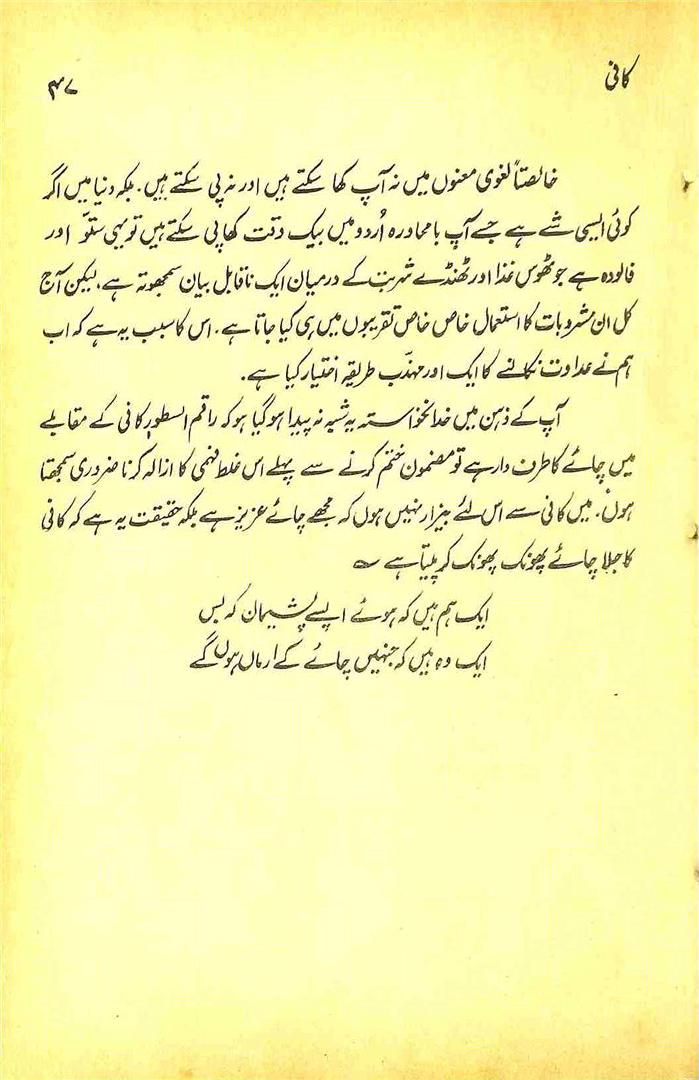 کافی
۴۷
خالصتاً لغوی معنوں میں نہ آپ کھا سکتے ہیں اور نہ پی سکتے ہیں۔ بلکہ دنیا میں اگر
کوئی ایسی شے ہے جسے آپ بامحاورہ اُردو میں بیک وقت کھا پی سکتے ہیں تو یہی ستّو اور
فالودہ ہے جو ٹھوس غذا اور ٹھنڈے شربت کے درمیان ایک ناقابل بیان سمجھوتہ ہے، لیکن آج
کل ان مشروبات کا استعمال خاص خاص تقریبوں میں ہی کیا جاتا ہے۔ اس کا سبب یہ ہے کہ اب
ہم نے عداوت نکالنے کا ایک اور مہذّب طریقہ اختیار کیا ہے۔
آپ کے ذہن میں خدانخواستہ یہ شبہ نہ پیدا ہو گیا ہو کہ راقم السطور کافی کے مقابلے
میں چائے کا طرف دار ہے تو مضمون ختم کرنے سے پہلے اس غلط فہمی کا ازالہ کرنا ضروری سمجھتا
ہوں۔ میں کافی سے اس لئے بیزار نہیں ہوں کہ مجھے چائے عزیز ہے بلکہ حقیقت یہ ہے کہ کافی
کا جلا چائے پھونک پھونک کر پیتا ہے ؎
ایک ہم ہیں کہ ہوئے ایسے پشیمان کہ بس
ایک وہ ہیں کہ جنہیں چائے کے ارماں ہوں گے